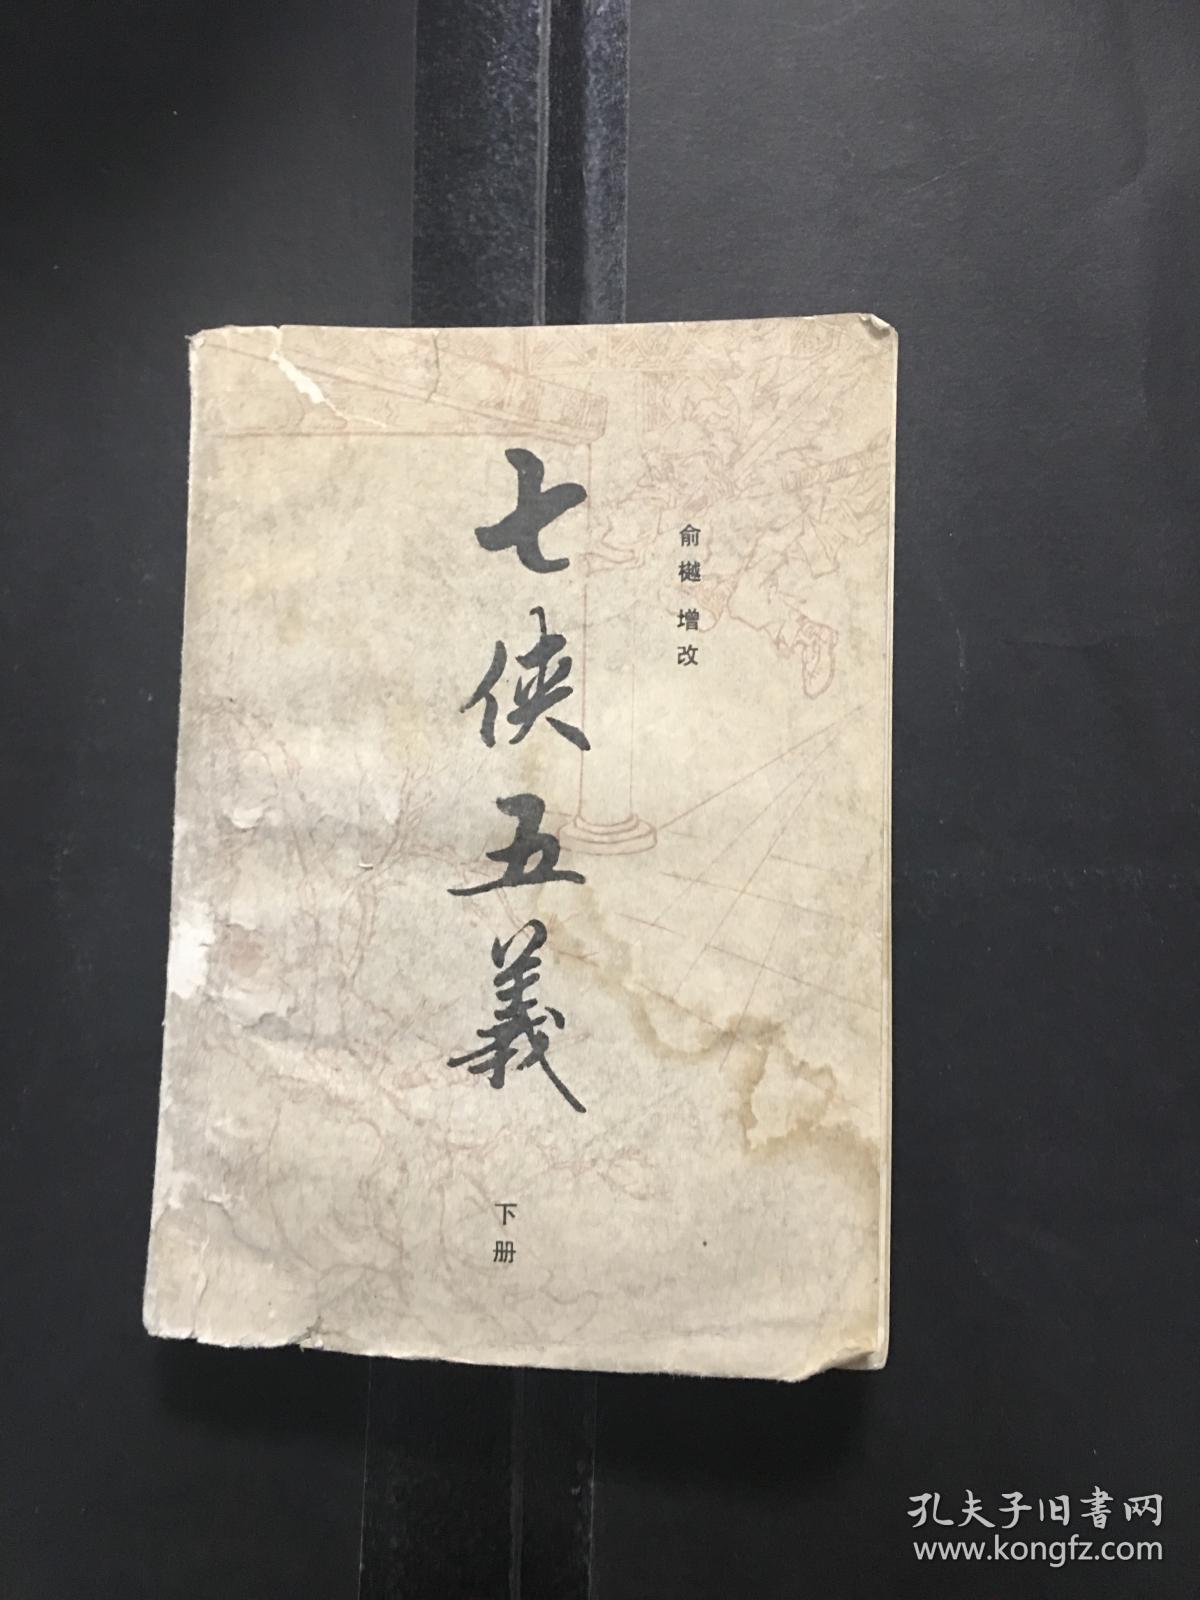 俞樾 增改
七侠五義
下册
孔夫子旧書网
www.kongfz.com